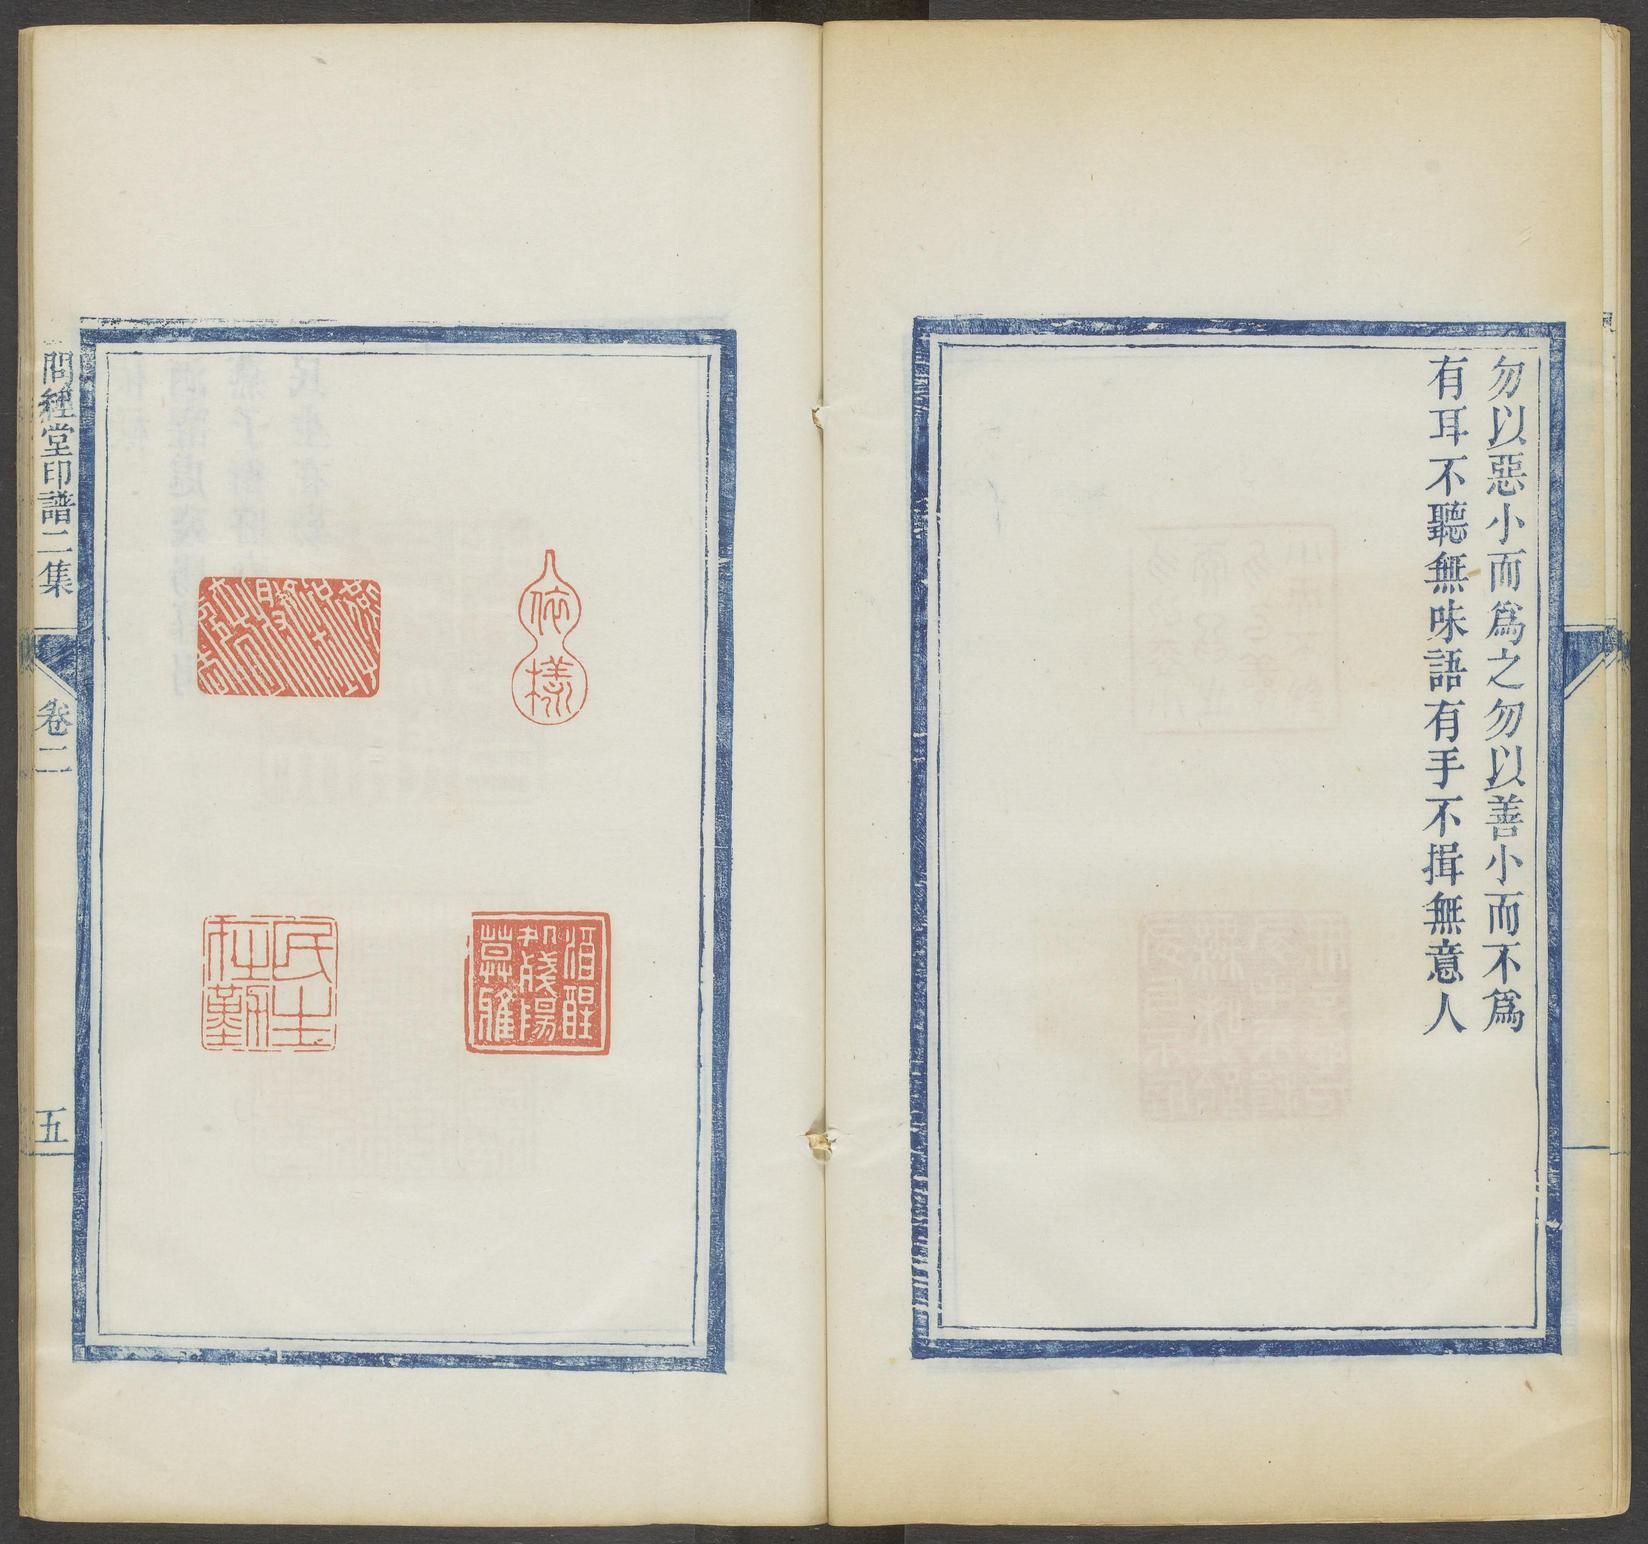 勿以惡小而爲之勿以善小而不爲
有耳不聽無味語有手不揖無意人
依樣
酒醒
民生
在勤
問經堂印譜二集
卷二
五